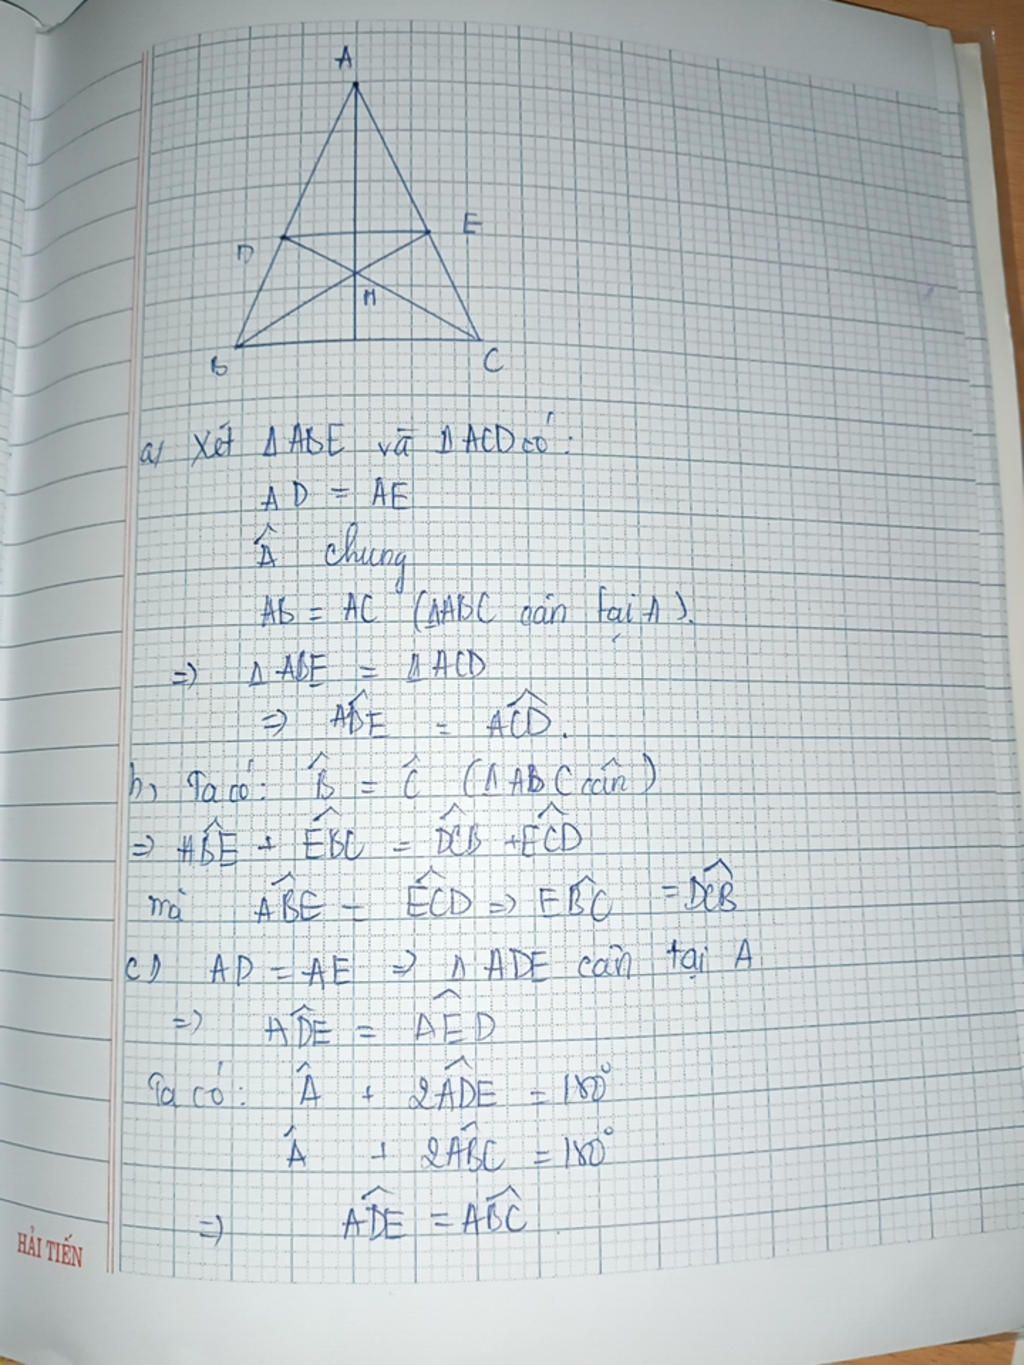 A
D
E
H
B
C
a) Xét Δ ABE và Δ ACD có:
AD = AE
Â chung
AB = AC (ΔABC cân tại A).
=> Δ ABE = Δ ACD
=> AB̂E = AĈD.
b, Ta có: B̂ = Ĉ (Δ ABC cân)
=> AB̂E + EB̂C = DĈB + EĈD
mà AB̂E = EĈD => EB̂C = DĈB
c) AD = AE => Δ ADE cân tại A
=> AD̂E = AÊD
Ta có: Â + 2AD̂E = 180°
Â + 2AB̂C = 180°
=> AD̂E = AB̂C
HẢI TIẾN